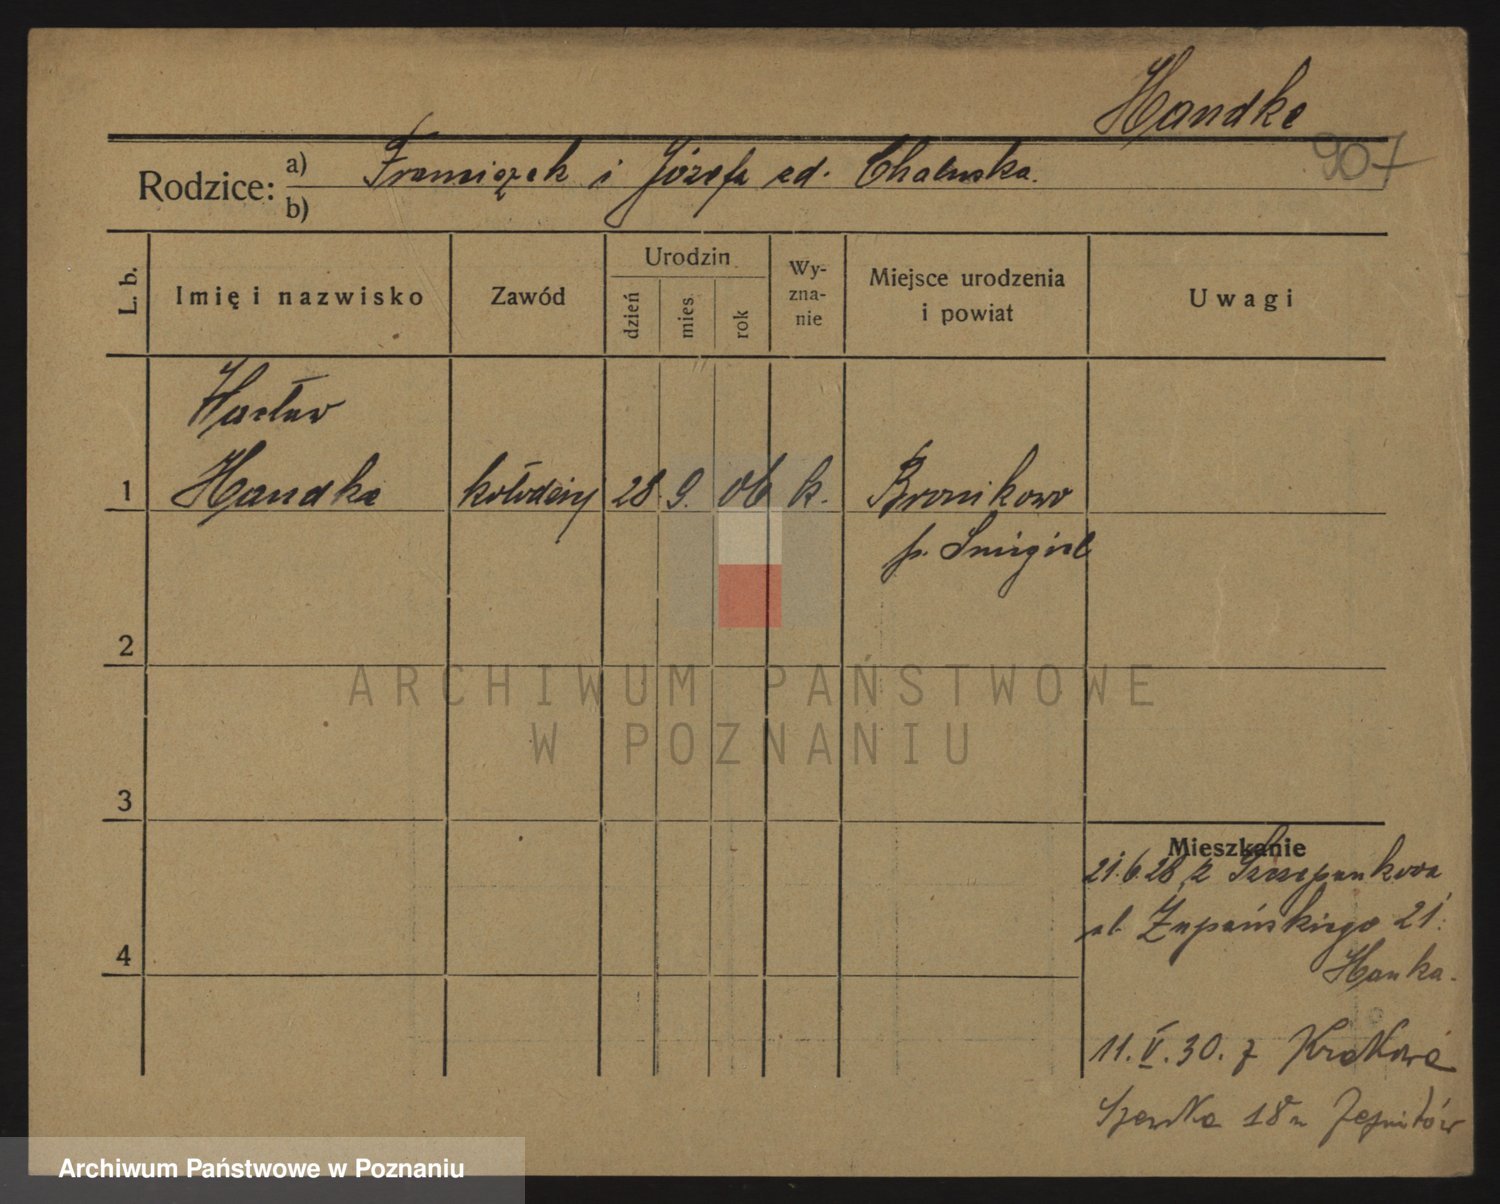 Handke
907
Rodzice: a) Franciszek i Józefa zd.
b)
L. b.
Imię i nazwisko
Zawód
Urodzin
dzień
mies.
rok
Wy-
zna-
nie
Miejsce urodzenia
i powiat
Uwagi
Wacław
1 Handke kołodziej 28 9. 06 k. Bronikowo
p. Śmigiel
2
3
4
Mieszkanie
21.6.28 z Szczepankowa
ul. Żupańskiego 21.
Hanka.
11.V.30. z Krakowa
Szewska 18 u Jezuitów
ARCHIWUM PAŃSTWOWE
W POZNANIU
Archiwum Państwowe w Poznaniu